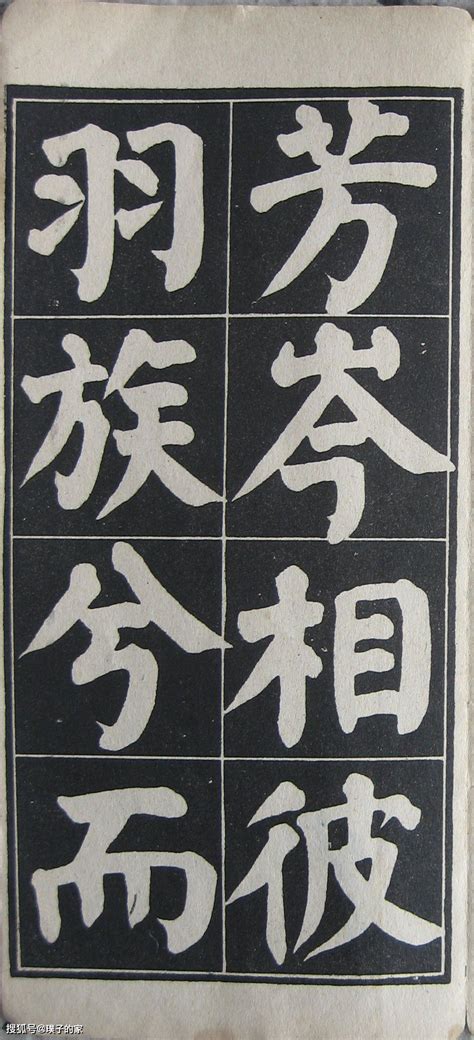 芳岑相彼
羽族兮而
搜狐号@璞子的家